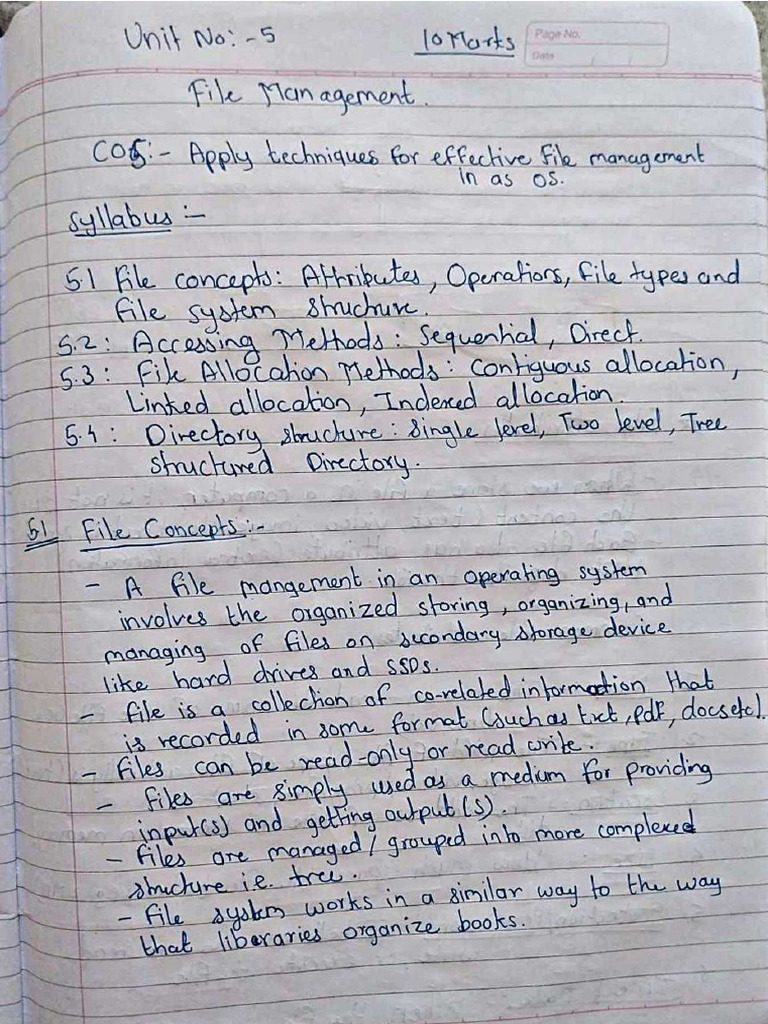 Unit No:-5
10 Marks
Page No.
Date
File Management.
CO5:- Apply techniques for effective file management
in as OS.
Syllabus :-
5.1 File concepts: Attributes, Operations, file types and
file system structure.
5.2: Accessing Methods: Sequential, Direct.
5.3: File Allocation Methods: Contiguous allocation,
Linked allocation, Indexed allocation.
5.4: Directory structure: Single level, Two level, Tree
structured Directory.
5.1 File Concepts:-
- A file mangement in an operating system
involves the organized storing, organizing, and
managing of files on secondary storage device
like hard drives and SSDs.
- file is a collection of co-related information that
is recorded in some format (such as txt, pdf, docs etc).
- files can be read-only or read write.
- files are simply used as a medium for providing
input(s) and getting output(s).
- files are managed/grouped into more complexed
structure i.e. tree.
- file system works in a similar way to the way
that liberaries organize books.